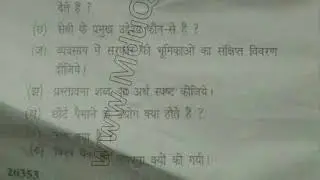 देते हैं ?
(छ) सेबी के प्रमुख उद्देश्य कौन-से हैं ?
(ज) व्यवसाय में सरकार की भूमिकाओं का संक्षिप्त विवरण
दीजिये।
(झ) प्रस्तावना शब्द का अर्थ स्पष्ट कीजिये।
छोटे पैमाने के उद्योग क्या होते हैं ?
क्या
विश्व क्यों की गयी।
20353
www.M